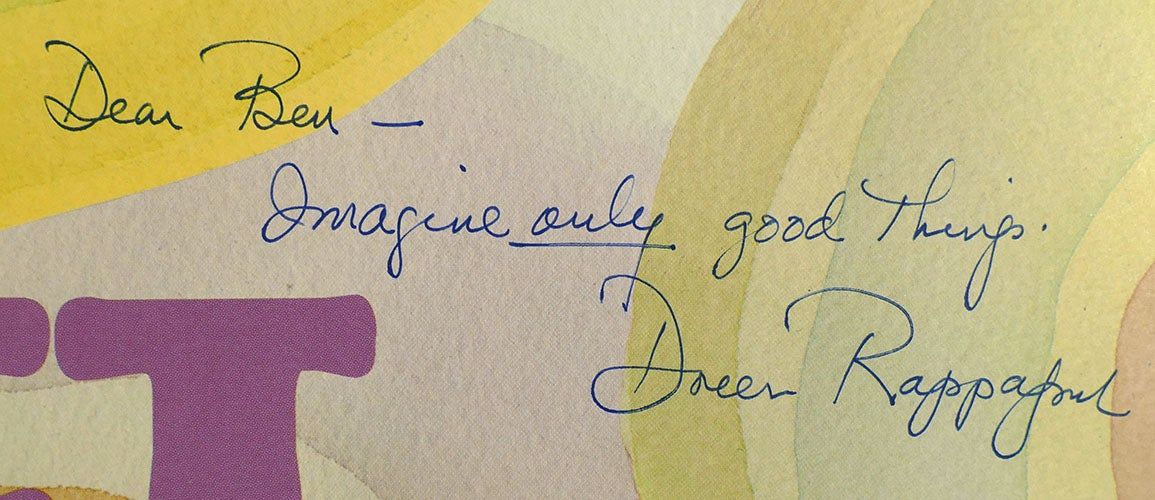 Dear Ben —
Imagine only good Things.
Doreen Rappaport
T